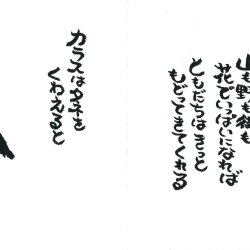 山も野も緑も
花でいっぱいになれば
ともだちはきっと
もどってきてくれる
カラスはタネを
くわえると